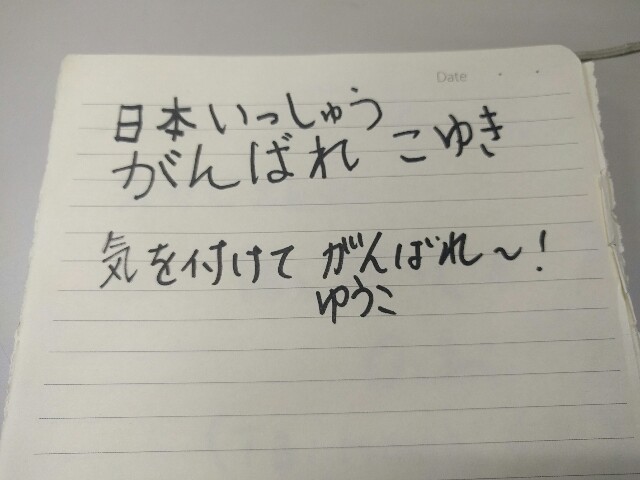 Date
日本いっしゅう
がんばれ こゆき
気を付けて がんばれ〜!
ゆうこ